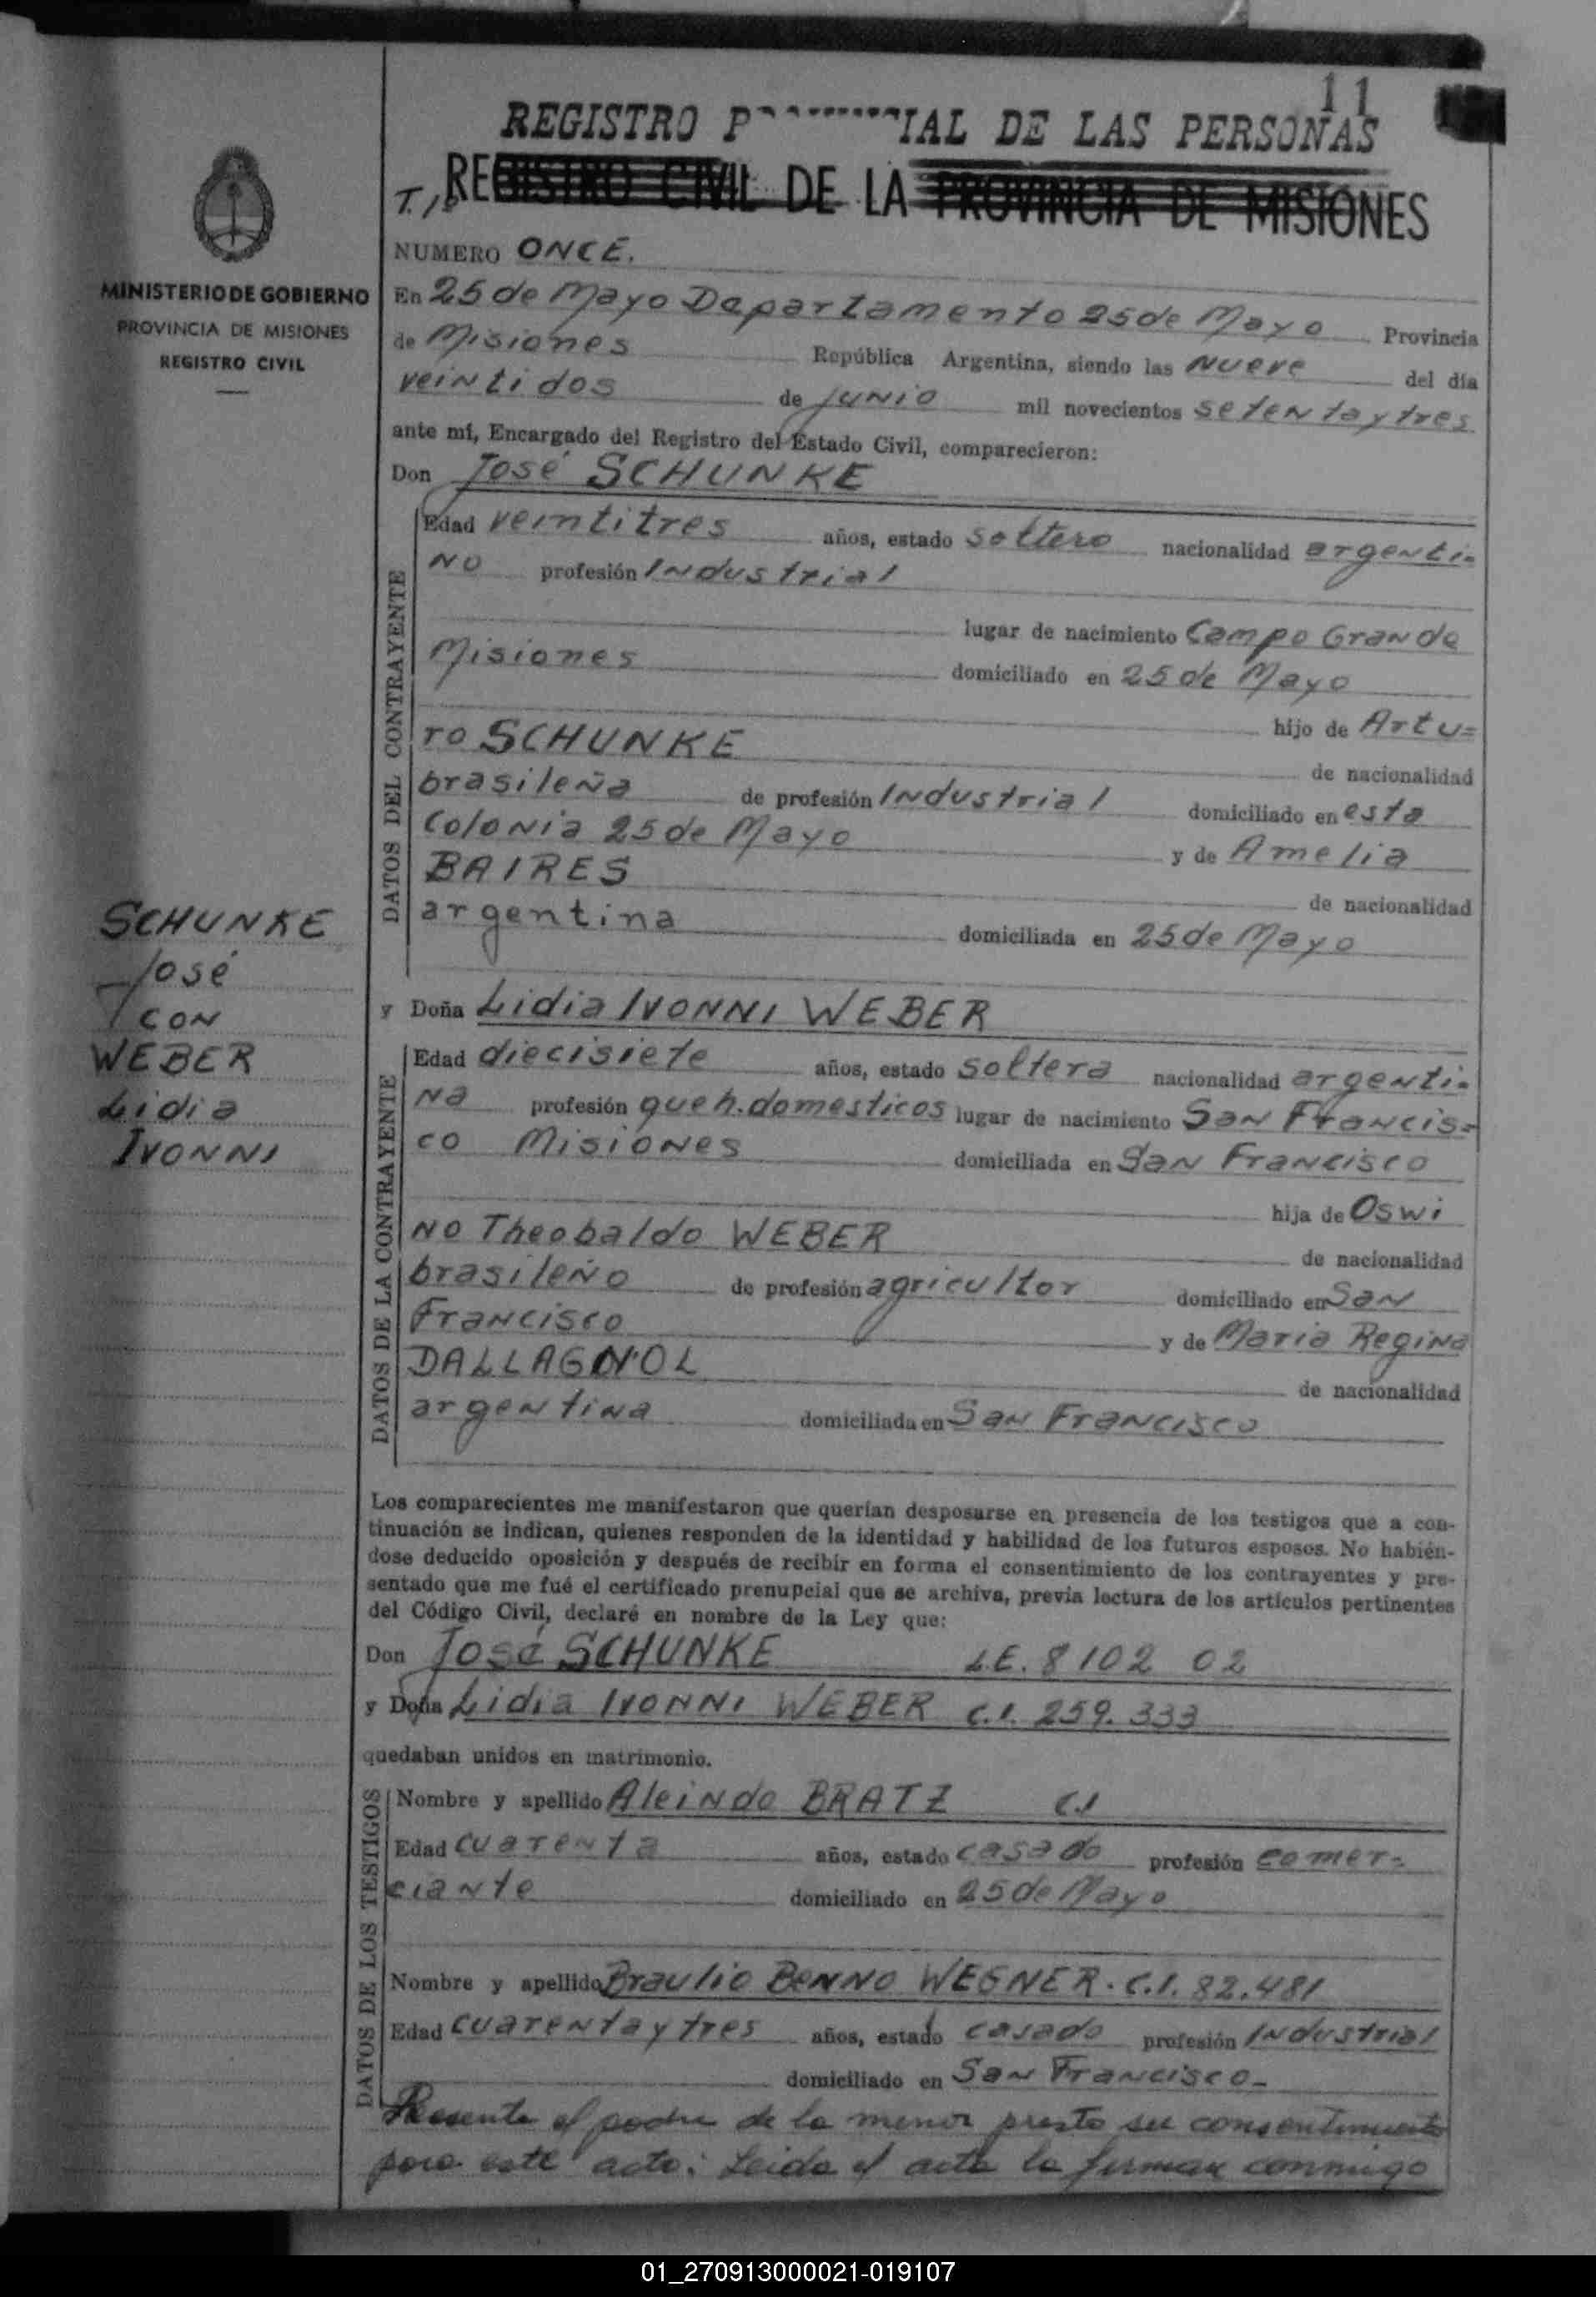 11
REGISTRO P        IAL DE LAS PERSONAS
REGISTRO CIVIL DE LA PROVINCIA DE MISIONES
MINISTERIO DE GOBIERNO
PROVINCIA DE MISIONES
REGISTRO CIVIL
NUMERO ONCE.
En 25 de Mayo Departamento 25 de Mayo Provincia
de Misiones República Argentina, siendo las Nueve del día
veintidos de junio mil novecientos setenta y tres
ante mí, Encargado del Registro del Estado Civil, comparecieron:
Don José SCHUNKE
DATOS DEL CONTRAYENTE
Edad veintitres años, estado soltero nacionalidad argenti-
no profesión Industrial
lugar de nacimiento Campo Grande
Misiones domiciliado en 25 de Mayo
hijo de Artu=
ro SCHUNKE de nacionalidad
brasileña de profesión Industrial domiciliado en esta
Colonia 25 de Mayo y de Amelia
BAIRES de nacionalidad
argentina domiciliada en 25 de Mayo
SCHUNKE
José
CON
WEBER
Lidia
IVONNI
y Doña Lidia IVONNI WEBER
DATOS DE LA CONTRAYENTE
Edad diecisiete años, estado soltera nacionalidad argenti-
na profesión queh. domesticos lugar de nacimiento San Francis=
co Misiones domiciliada en San Francisco
hija de Oswi
no Theobaldo WEBER de nacionalidad
brasileño de profesión agricultor domiciliado en San
Francisco y de Maria Regina
DALLAGNOL de nacionalidad
argentina domiciliada en San Francisco
Los comparecientes me manifestaron que querían desposarse en presencia de los testigos que a con-
tinuación se indican, quienes responden de la identidad y habilidad de los futuros esposos. No habién-
dose deducido oposición y después de recibir en forma el consentimiento de los contrayentes y pre-
sentado que me fué el certificado prenupcial que se archiva, previa lectura de los artículos pertinentes
del Código Civil, declaré en nombre de la Ley que:
Don José SCHUNKE L.E. 8 102 02
y Doña Lidia IVONNI WEBER C.I. 259.333
quedaban unidos en matrimonio.
DATOS DE LOS TESTIGOS
Nombre y apellido Aleindo BRATZ C.I
Edad cuarenta años, estado casado profesión comer-
ciante domiciliado en 25 de Mayo
Nombre y apellido Braulio BENNO WEGNER. C.I. 82.481
Edad cuarenta y tres años, estado casado profesión Industrial
domiciliado en San Francisco-
Presente el padre de la menor presto su consentimiento
para este acto: Leida el acta la firman conmigo
01_270913000021-019107